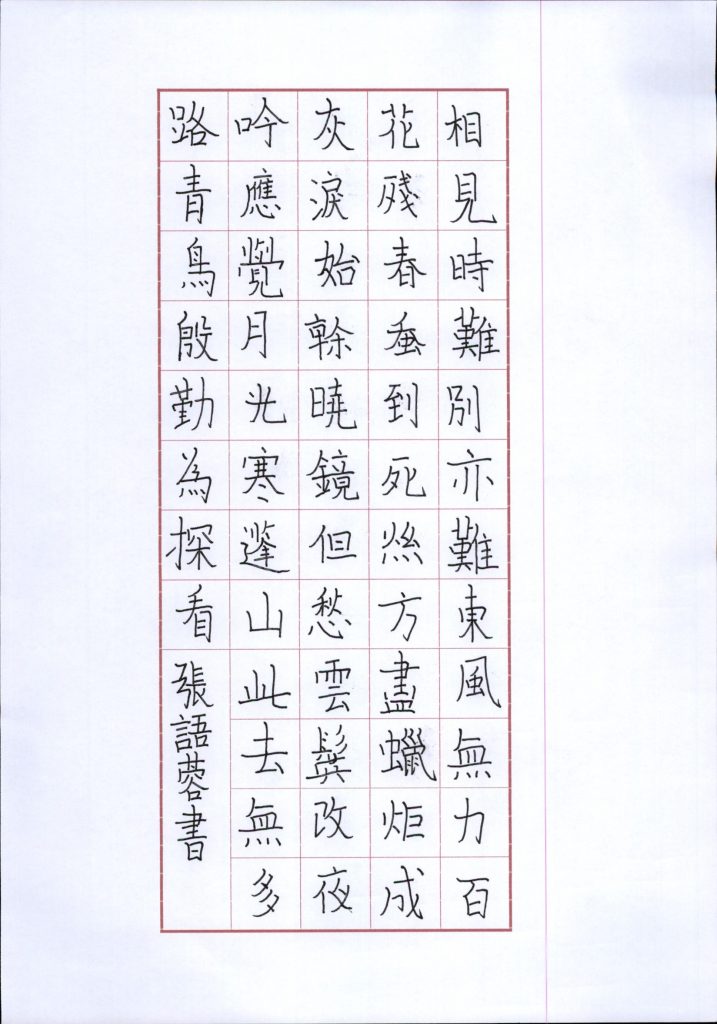 相見時難別亦難東風無力百
花殘春蚕到死絲方盡蠟炬成
灰淚始乾曉鏡但愁雲鬢改夜
吟應覺月光寒蓬山此去無多
路青鳥殷勤為探看
張語蓉書